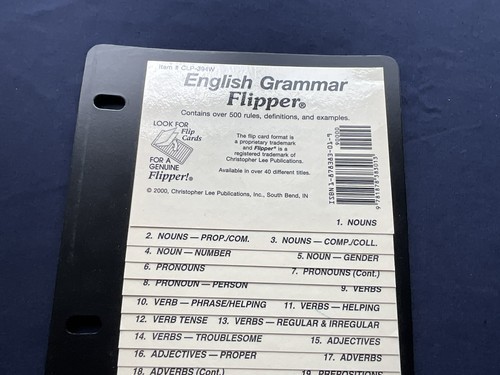 Item # CLP-394W
English Grammar
Flipper®
Contains over 500 rules, definitions, and examples.
LOOK FOR
Flip
Cards
FOR A
GENUINE
Flipper!®
The flip card format is
a proprietary trademark
and Flipper® is a
registered trademark of
Christopher Lee Publications.
Available in over 40 different titles.
© 2000, Christopher Lee Publications, Inc., South Bend, IN
ISBN 1-878383-01-9
90000
9 781878 383013
1. NOUNS
2. NOUNS — PROP./COM. 3. NOUNS — COMP./COLL.
4. NOUN — NUMBER 5. NOUN — GENDER
6. PRONOUNS 7. PRONOUNS (Cont.)
8. PRONOUN — PERSON 9. VERBS
10. VERB — PHRASE/HELPING 11. VERBS — HELPING
12. VERB TENSE 13. VERBS — REGULAR & IRREGULAR
14. VERBS — TROUBLESOME 15. ADJECTIVES
16. ADJECTIVES — PROPER 17. ADVERBS
18. ADVERBS (Cont.) 19. PREPOSITIONS